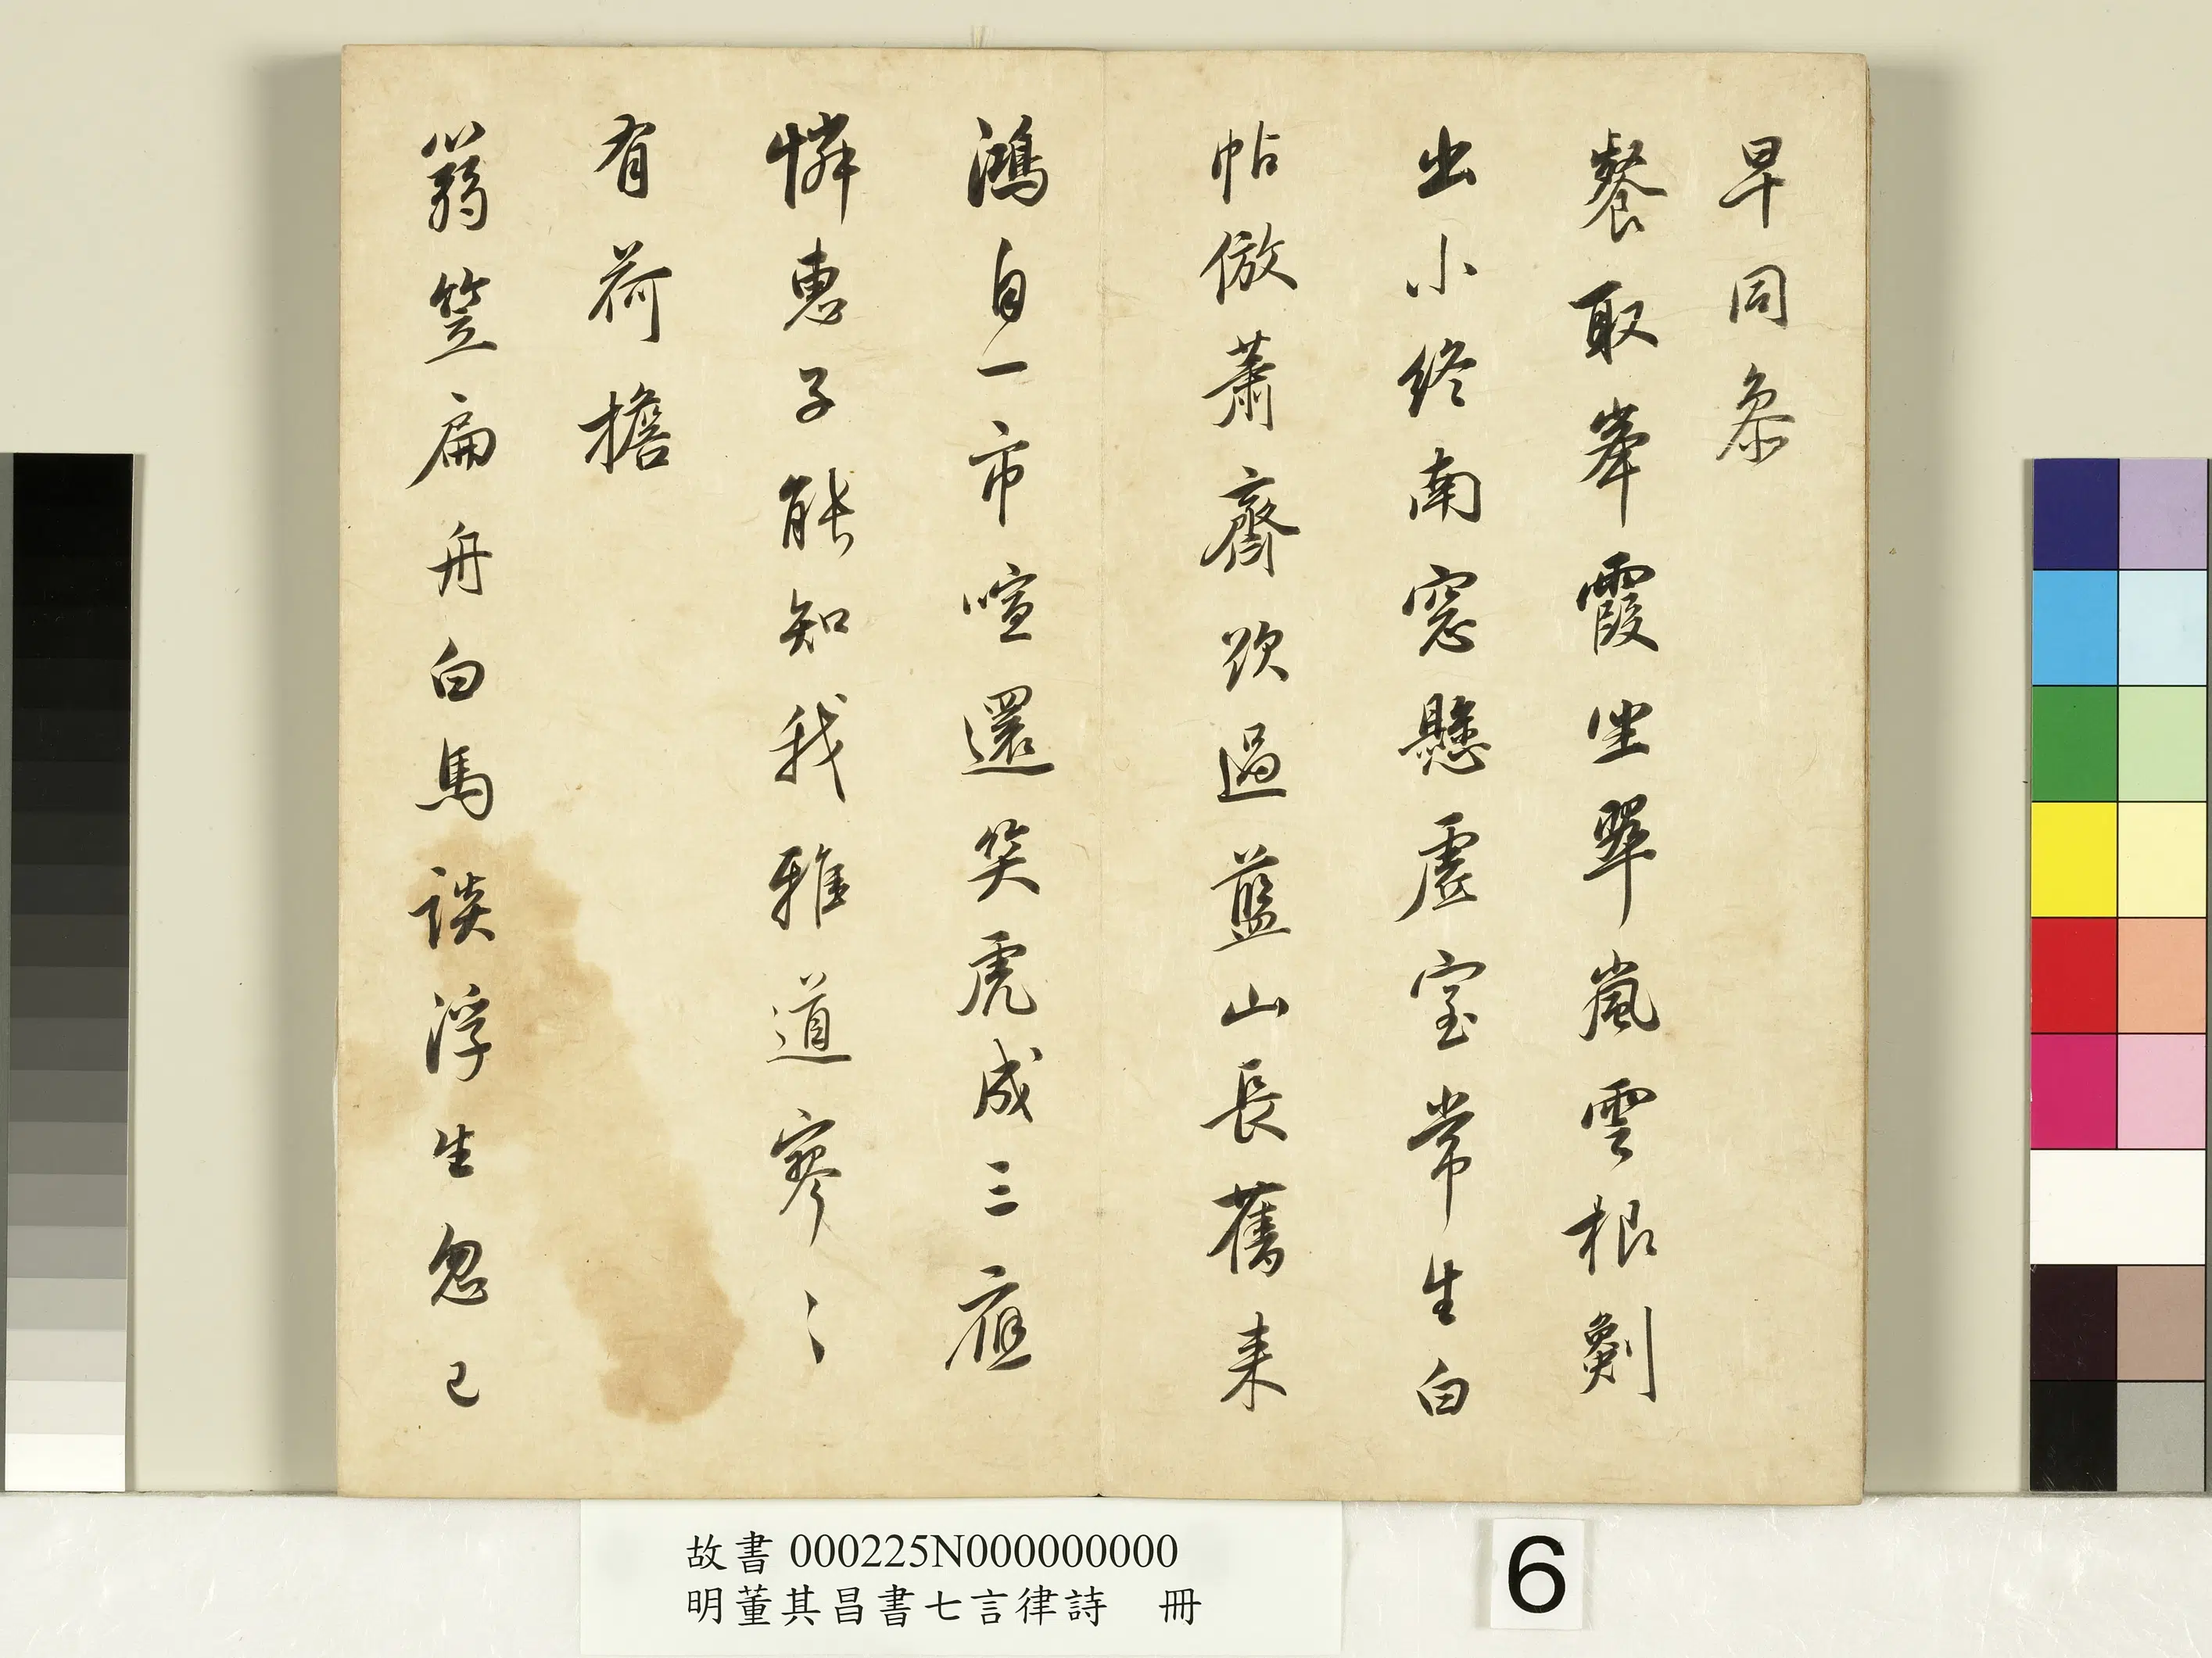 早同參
餐取峯霞坐翠嵐雲根劚
出小終南窓懸虛室常生白
帖倣蕭齋欲過藍山長舊来
鴻自一市喧還笑虎成三應
憐惠子能知我雅道寥〻
有荷擔
蒻笠扁舟白馬談浮生忽已
故書 000225N000000000
明董其昌書七言律詩 冊
6